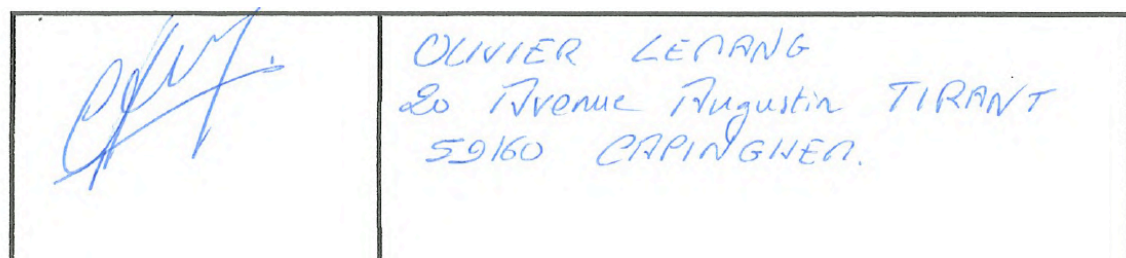 OLIVIER LEMANG
20 Avenue Augustin TIRANT
59160 CAPINGHEM.